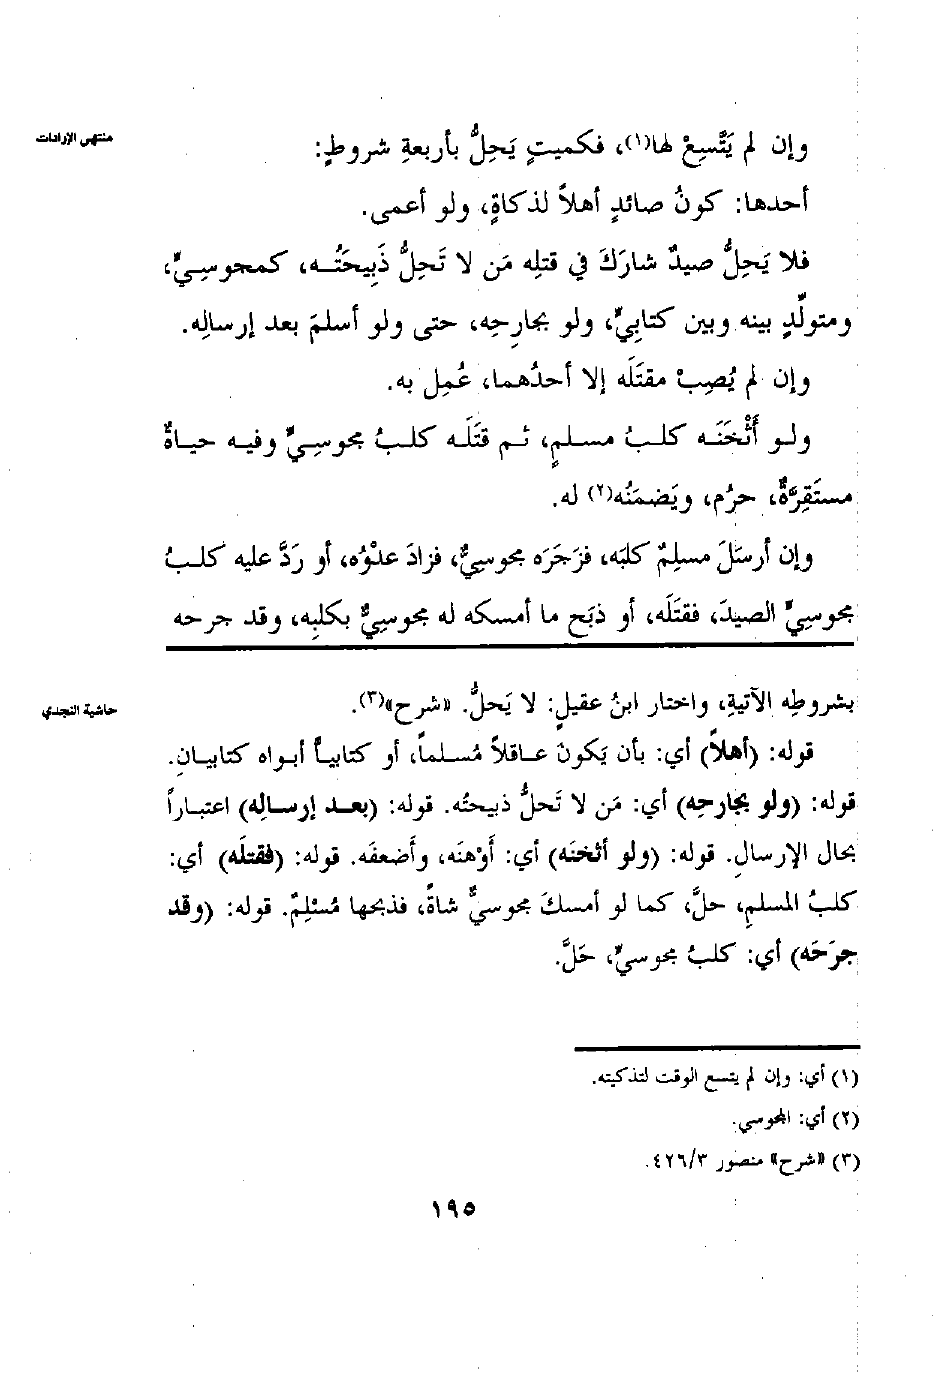 منتهى الإرادات
وإن لم يَتَّسِعْ لها(١)، فكميتٍ يَحِلُّ بأربعةِ شروطٍ:
أحدها: كونُ صائدٍ أهلاً لذكاةٍ، ولو أعمى.
فلا يَحِلُّ صيدٌ شارَكَ في قتلِه مَن لا تَحِلُّ ذَبِيحَتُه، كمجوسِيٍّ،
ومتولِّدٍ بينه وبين كتابِيٍّ، ولو بجارحِه، حتى ولو أسلمَ بعد إرسالِه.
وإن لم يُصِبْ مقتَلَه إلا أحدُهما، عُمِل به.
ولو أَثْخَنَه كلبُ مسلمٍ، ثم قتَلَه كلبُ مجوسِيٍّ وفيه حياةٌ
مستَقِرَّةٌ، حرُم، ويَضمَنُه(٢) له.
وإن أرسَلَ مسلِمٌ كلبَه، فزَجَرَه مجوسِيٌّ، فزادَ عدْوُه، أو رَدَّ عليه كلبُ
مجوسِيٍّ الصيدَ، فقتَلَه، أو ذبَح ما أمسكه له مجوسِيٌّ بكلبِه، وقد جرحه
حاشية النجدي
بشروطِه الآتيةِ، واختار ابنُ عقيلٍ: لا يَحلُّ. «شرح»(٣).
قوله: (أهلاً) أي: بأن يَكونَ عاقلاً مُسلماً، أو كتابياً أبواه كتابيانِ.
قوله: (ولو بجارحِه) أي: مَن لا تَحلُّ ذبيحتُه. قوله: (بعد إرسالِه) اعتباراً
بحال الإرسالِ. قوله: (ولو أثخنَه) أي: أوْهنَه، وأضعفَه. قوله: (فقتلَه) أي:
كلبُ المسلمِ، حلَّ، كما لو أمسكَ مجوسيٌّ شاةً، فذبحها مُسْلِمٌ. قوله: (وقد
جرَحَه) أي: كلبُ مجوسيٍّ، حَلَّ.
(١) أي: وإن لم يتسع الوقت لتذكيته.
(٢) أي: المجوسي.
(٣) «شرح» منصور ٤٢٦/٣.
١٩٥